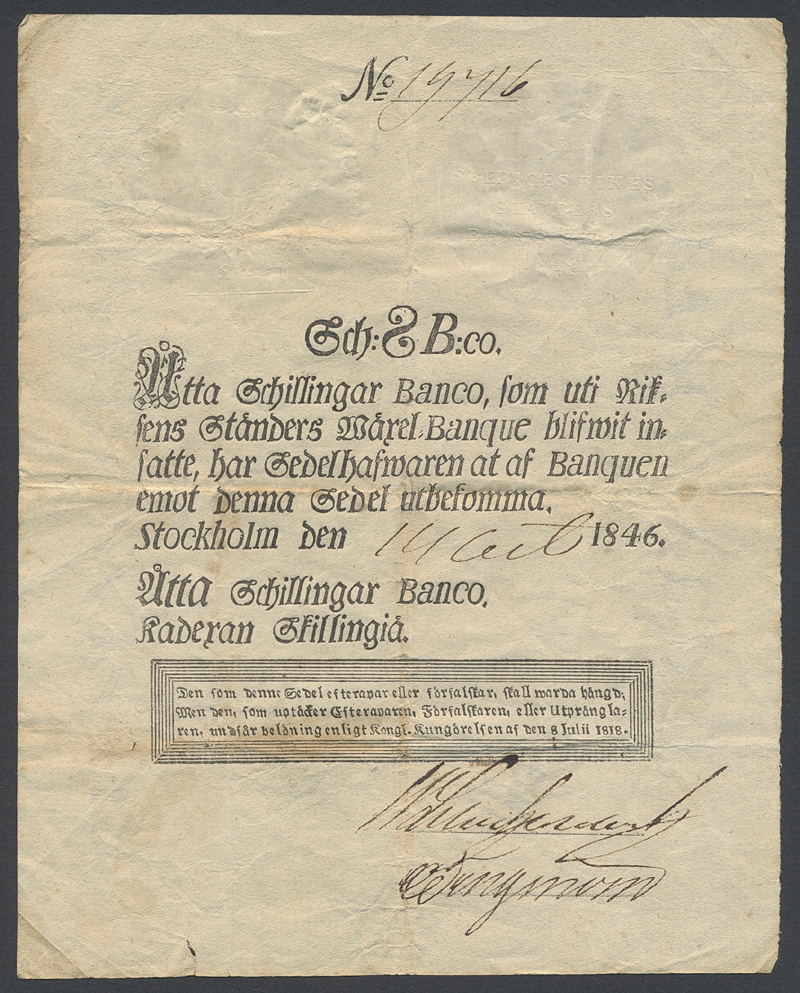 No 19716
SVERIGES RIKES
STÄNDERS
Sch: 8 B:co.
Åtta Schillingar Banco, som uti Rik-
sens Ständers Wäxel-Banque blifwit in-
satte, har Sedelhafwaren at af Banquen
emot denna Sedel utbekomma.
Stockholm den 14 Oct 1846.
Åtta Schillingar Banco.
Kadexan Skillingiä.
Den som denne Sedel efterapar eller förfalskar, skall warda hängd;
Men den, som uptäcker Efteraparen, Förfalskaren, eller Utprångla-
ren, undfår belöning enligt Kongl. Kungörelsen af den 8 Julii 1818.